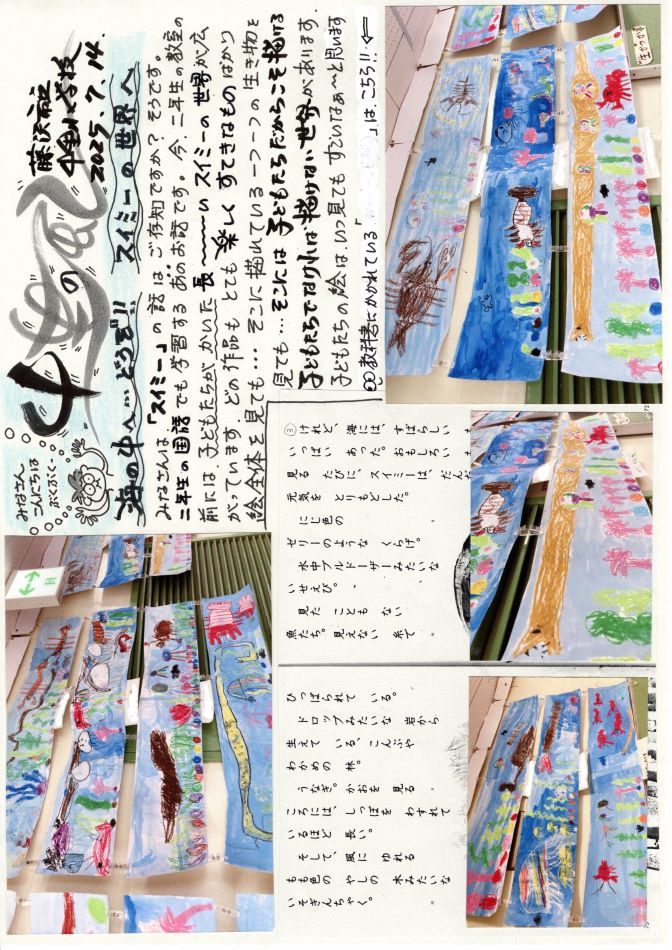 藤沢市立
小学校
2025.7.14.
みなさん
こんにちは
ぶくぶくー
海の中へ…どうぞ!! スイミーの世界へ
みなさんは、「スイミー」の話は ご存知ですか? そうです。
二年生の国語でも学習する あのお話です。今、二年生の教室の
前には、子どもたちがかいた 長〜〜〜い スイミーの世界が広
がっています。どの作品も とても 楽しく すてきなものばかり
絵全体を見ても… そこに描かれている一つ一つの生き物を
見ても… そこには 子どもたちだからこそ描ける
子どもたちでなければ描けない世界があります。
子どもたちの絵はいつ見ても すごいなぁ〜と思います
∞教科書にかかれている「 」は、こちら!! ⇦
③けれど、海には、すばらしい
いっぱい あった。おもしろい
見る たびに、スイミーは、だんだ
元気を とりもどした。
にじ色の
ゼリーのような くらげ。
水中ブルドーザーみたいな
いせえび。
見た ことも ない
魚たち。見えない 糸で
ひっぱられて いる。
ドロップみたいな 岩から
生えて いる、こんぶや
わかめの 林。
うなぎ。かおを 見る
ころには、しっぽを わすれて
いるほど 長い。
そして、風に ゆれる
もも色の やしの 木みたいな
いそぎんちゃく。